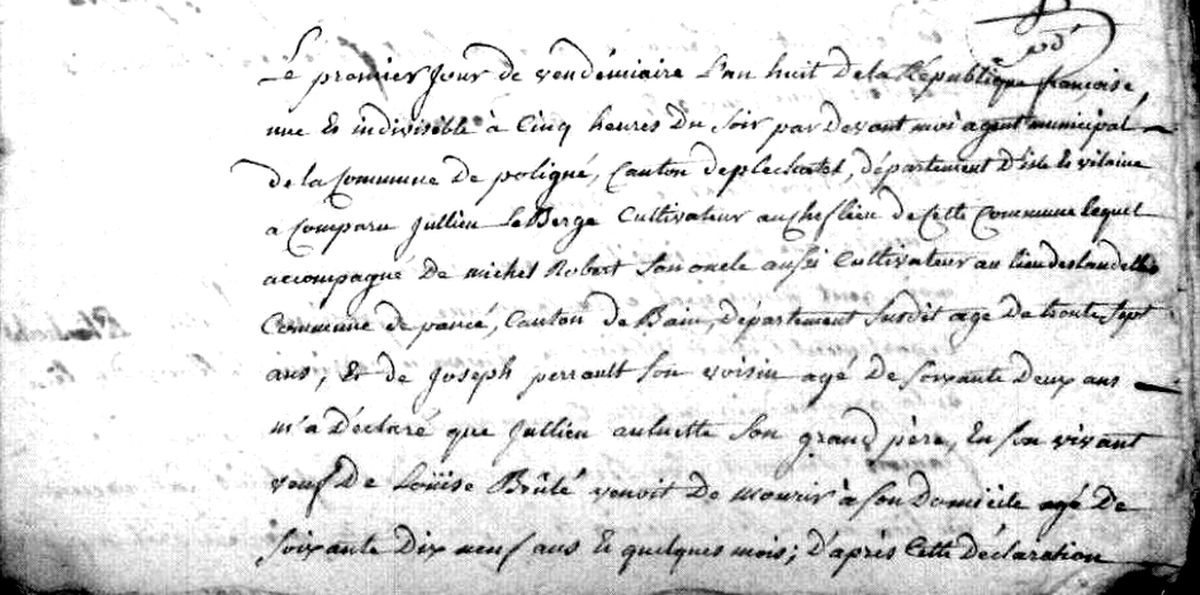 Le premier jour de vendémiaire l'an huit de la République françoise,
une et indivisible à cinq heures du soir par devant moi agent municipal
de la commune de poligné, canton de plechatel, département d'ille et vilaine
a comparu jullien LeBerge cultivateur au cheflieu de cette commune lequel
accompagné de michel Robert son oncle aussi cultivateur au lieu des landelles
commune de pancé, canton de Bain, département susdit agé de trente sept
ans, et de joseph perrault son voisin agé de soixante deux ans
m'a déclaré que jullien aulnette son grand père, en son vivant
veuf de Loüise Brûlé venoit de mourir à son domicile agé de
soixante dix neuf ans et quelques mois; d'après cette déclaration